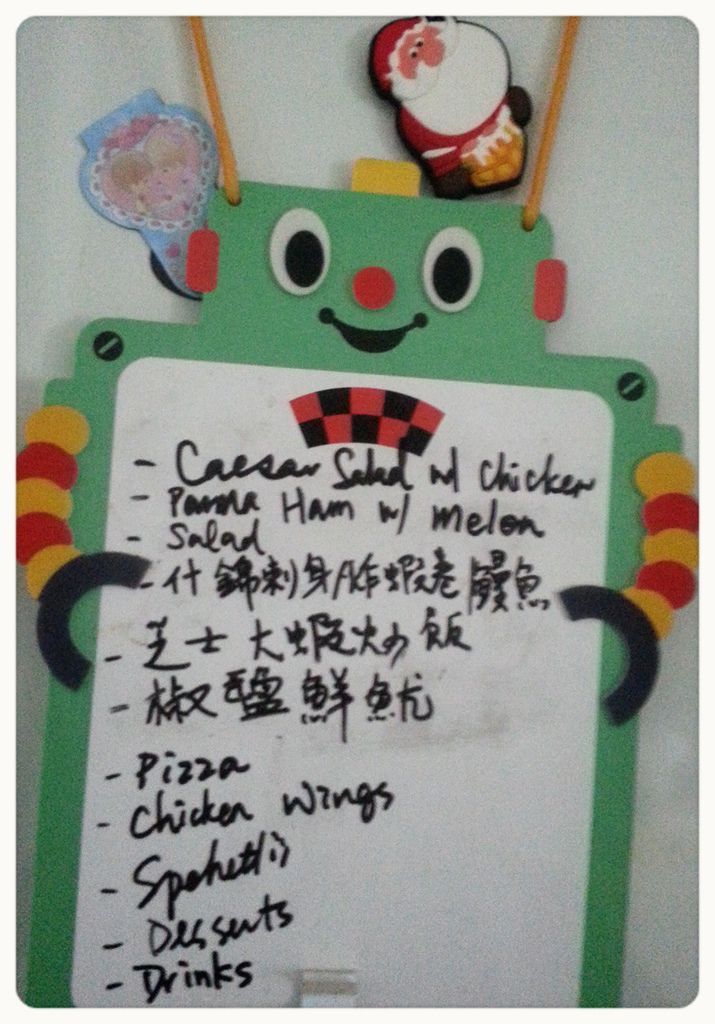 - Caesar Salad w/ chicken
- Parma Ham w/ melon
- Salad
- 什錦刺身炸蝦卷鰻魚
- 芝士大蝦炒飯
- 椒鹽鮮魷
- Pizza
- Chicken Wings
- Spehetti
- Desserts
- Drinks